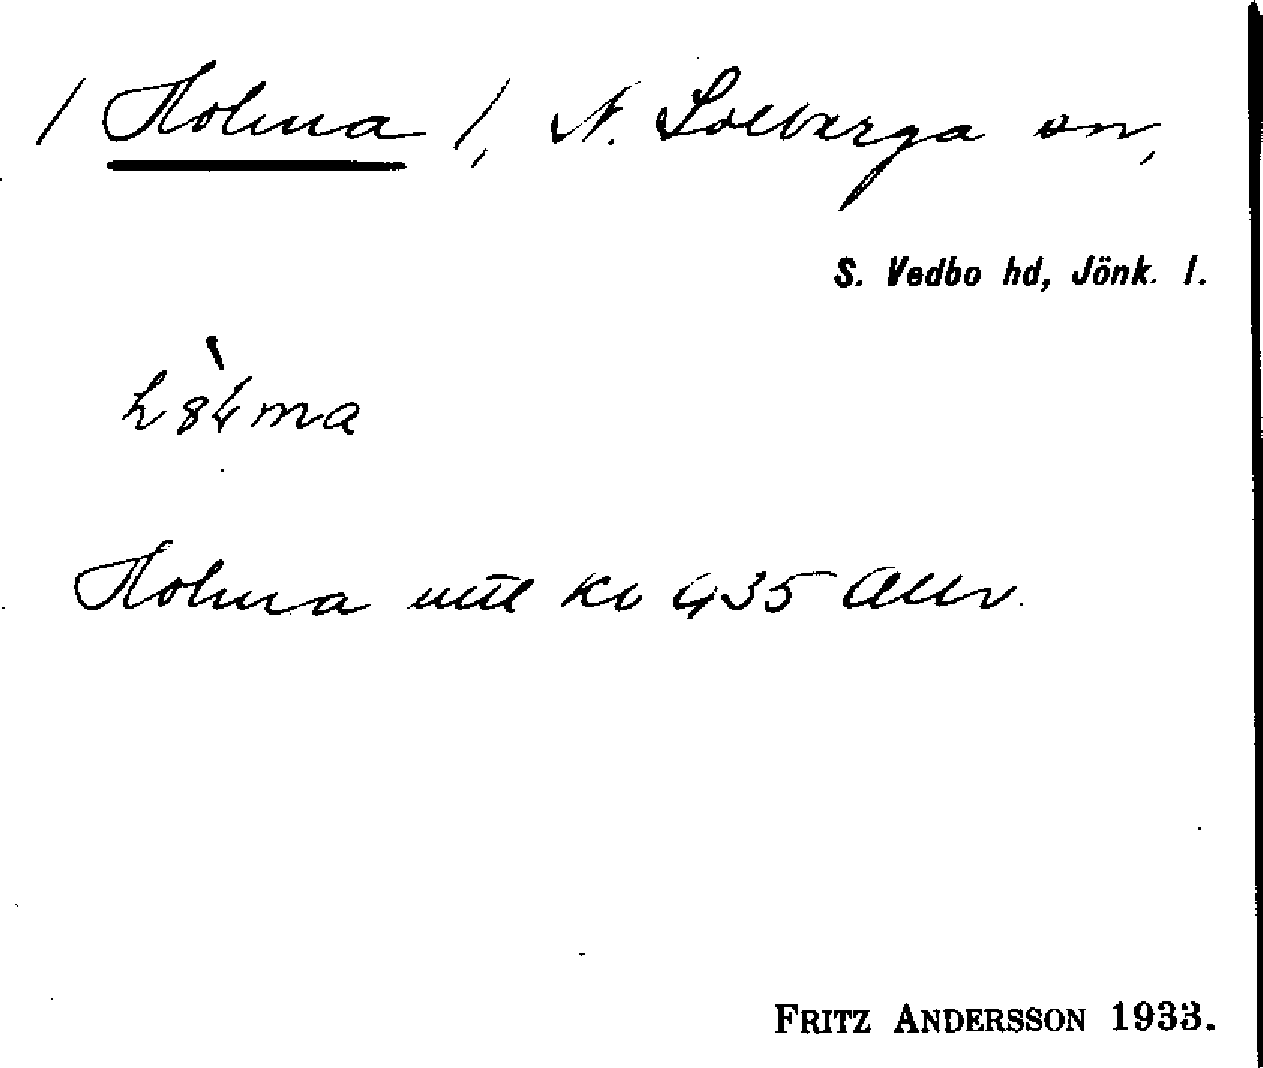 / Holma /, N. Solberga sn,
S. Vedbo hd, Jönk. l.
Holma uttl kb 435 Allm.
FRITZ ANDERSSON 1933.